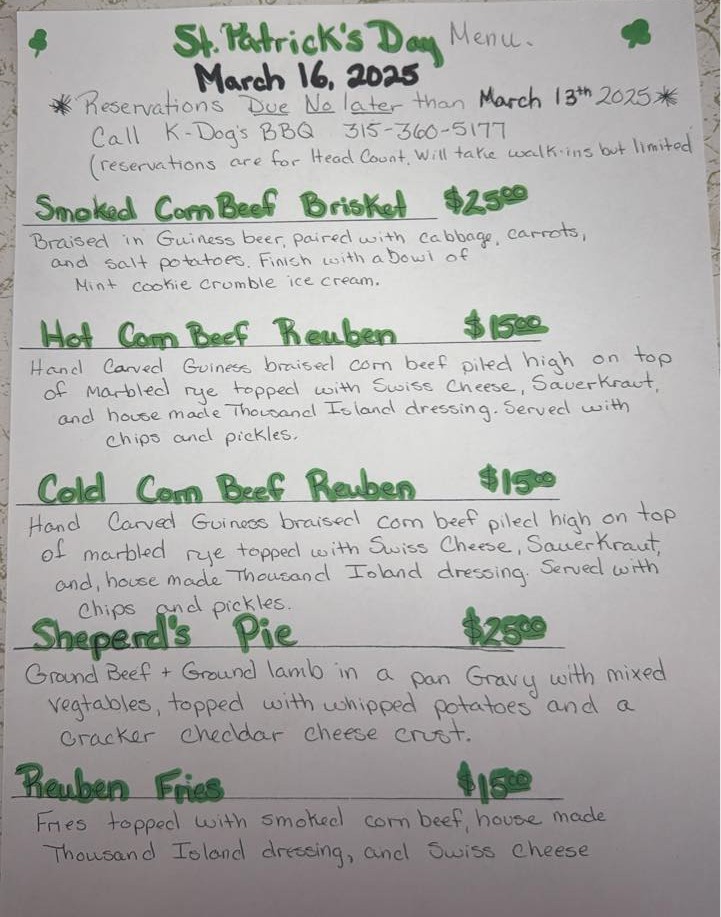 St. Patrick's Day Menu.
March 16, 2025
* Reservations Due No later than March 13th 2025 *
Call K-Dog's BBQ 315-360-5177
(reservations are for Head Count. Will take walk-ins but limited
Smoked Corn Beef Brisket $25.00
Braised in Guiness beer, paired with cabbage, carrots,
and salt potatoes. Finish with a bowl of
Mint cookie crumble ice cream.
Hot Corn Beef Reuben $15.00
Hand Carved Guiness braised corn beef piled high on top
of Marbled rye topped with Swiss Cheese, Sauerkraut,
and house made Thousand Island dressing. Served with
chips and pickles.
Cold Corn Beef Reuben $15.00
Hand Carved Guiness braised corn beef piled high on top
of marbled rye topped with Swiss Cheese, Sauerkraut,
and, house made Thousand Island dressing. Served with
chips and pickles.
Sheperd's Pie $25.00
Ground Beef + Ground lamb in a pan Gravy with mixed
vegtables, topped with whipped potatoes and a
cracker cheddar cheese crust.
Reuben Fries $15.00
Fries topped with smoked corn beef, house made
Thousand Island dressing, and Swiss Cheese